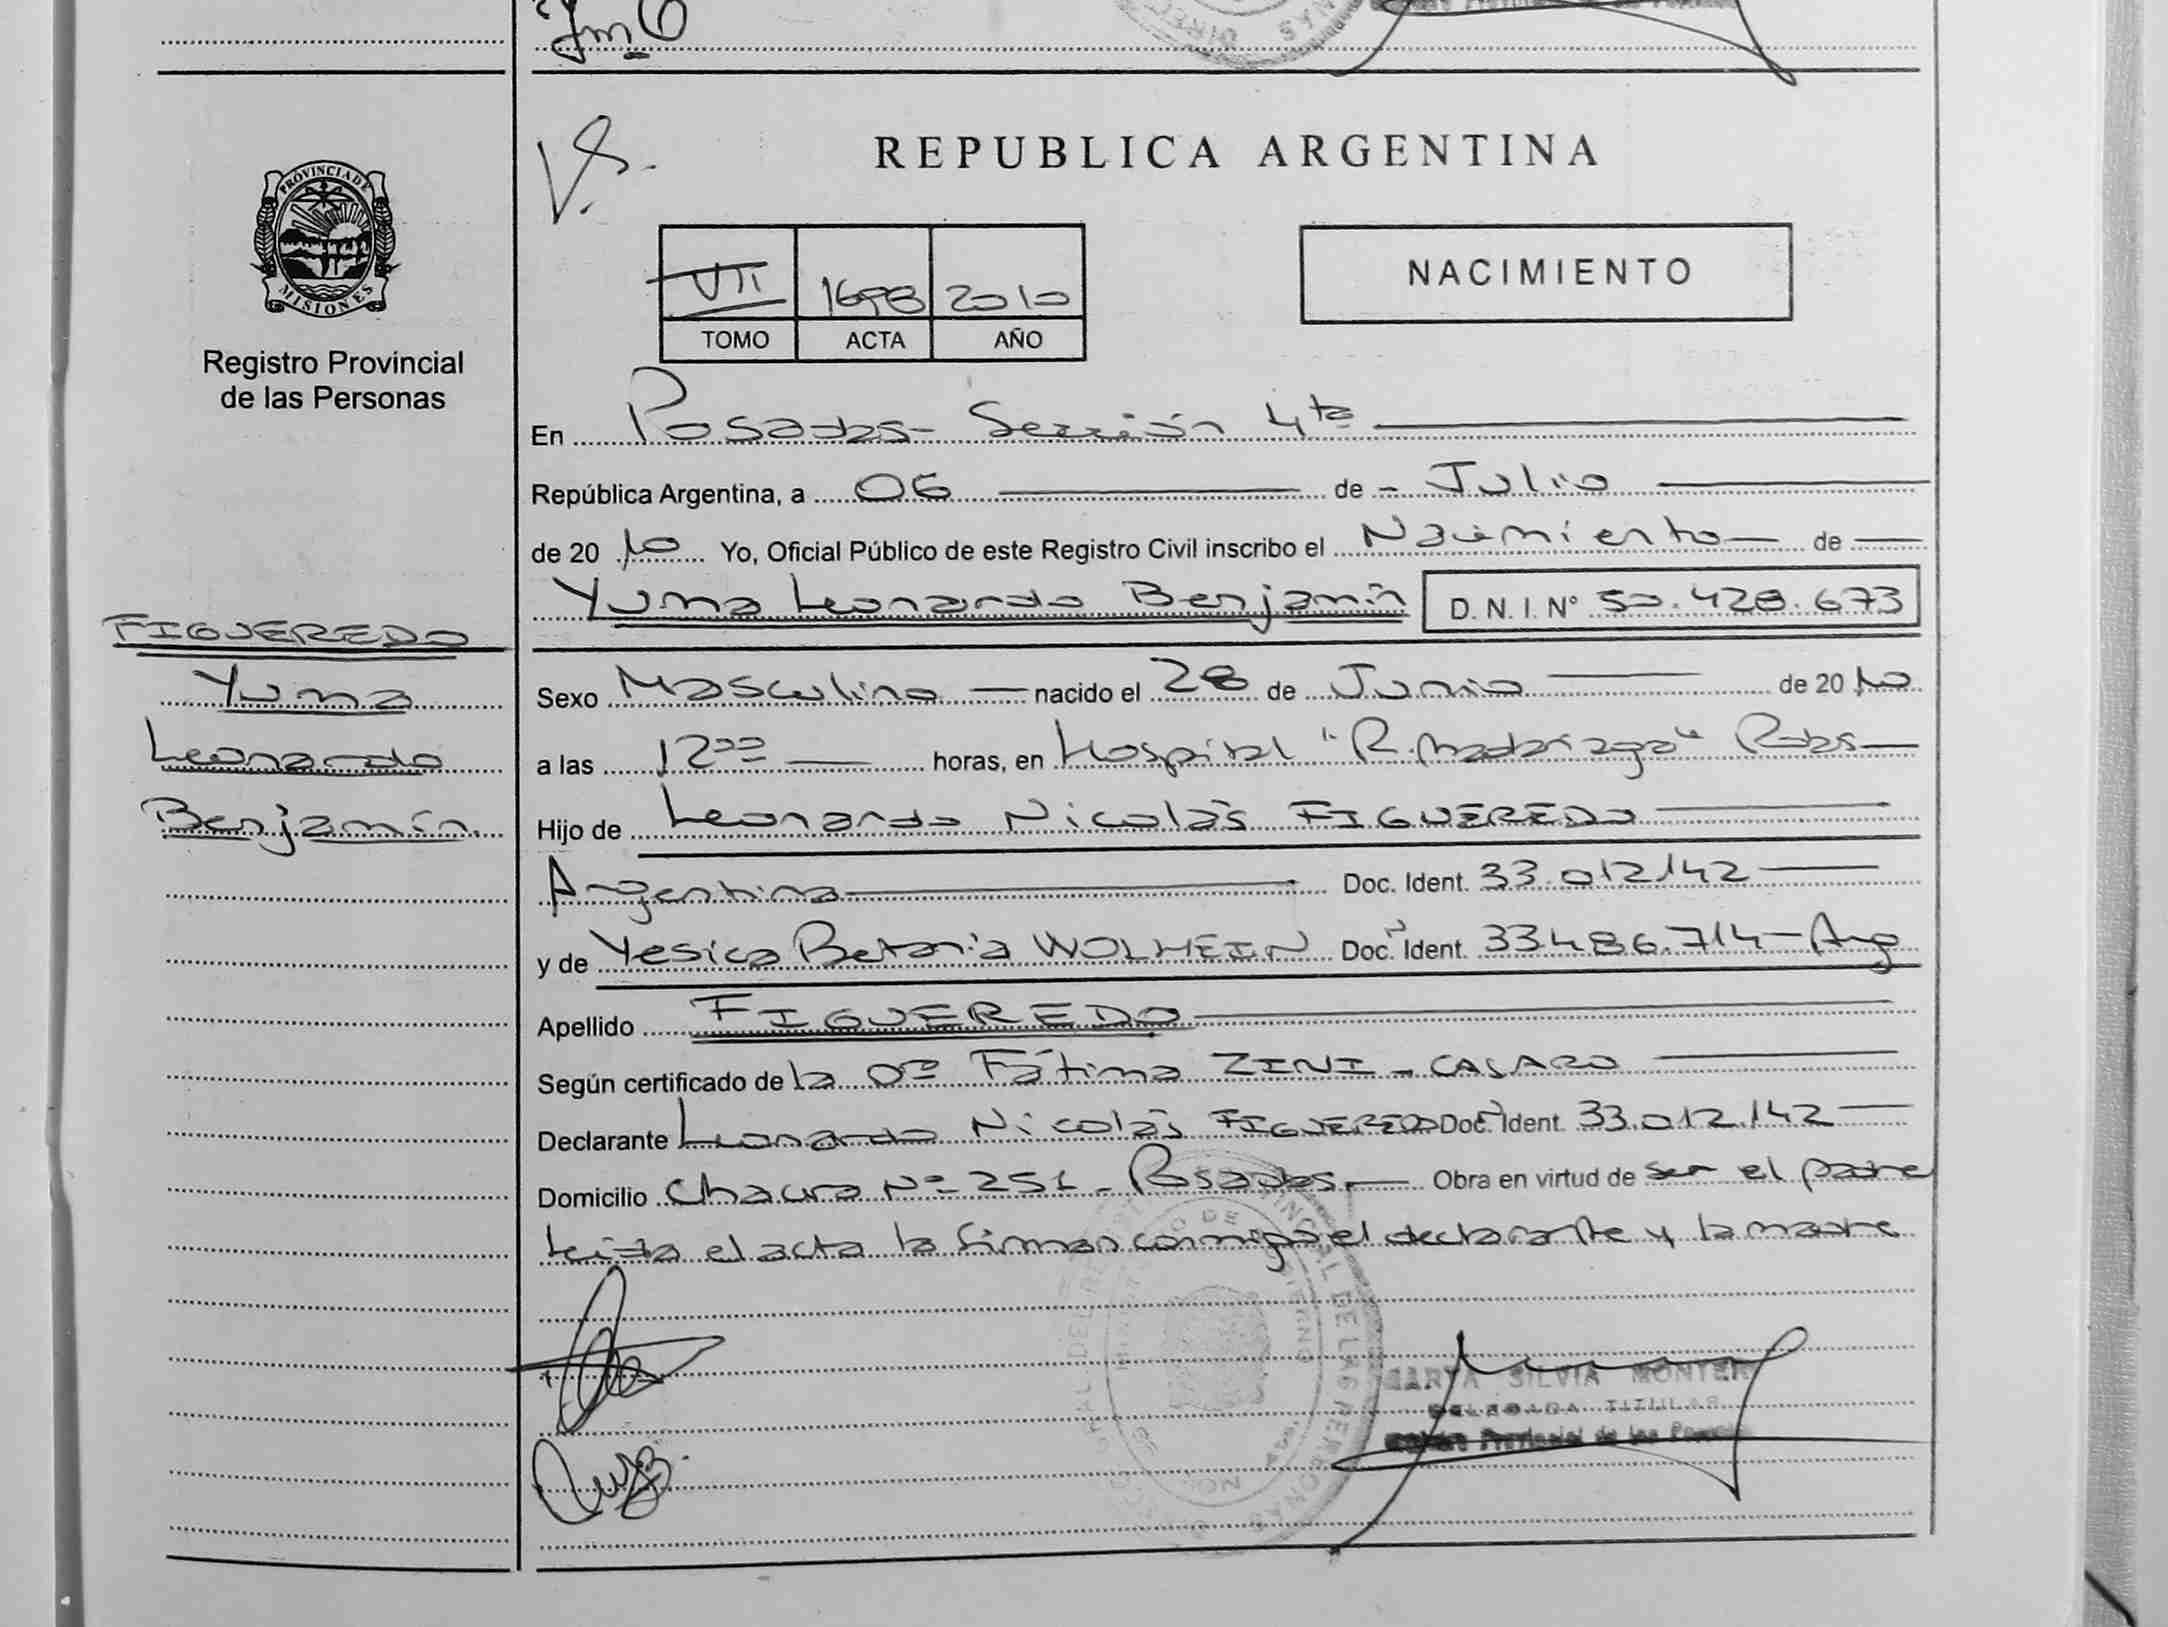 REPUBLICA ARGENTINA
PROVINCIA DE MISIONES
Registro Provincial
de las Personas
VII 1698 2010
TOMO ACTA AÑO
NACIMIENTO
En Posadas - Sección 4ta
República Argentina, a 06 de Julio
de 2010 Yo, Oficial Público de este Registro Civil inscribo el Nacimiento de
Yuma Leonardo Benjamín D.N.I. Nº 50.428.673
FIGUEREDO
Yuma
Leonardo
Benjamín
Sexo Masculino nacido el 28 de Junio de 2010
a las 12 00 horas, en Hospital "R. Madariaga" Pdas
Hijo de Leonardo Nicolás FIGUEREDO
Argentina Doc. Ident. 33.012.142
y de Yesica Betania WOLHEIN Doc. Ident. 33.486.714 - Arg
Apellido FIGUEREDO
Según certificado de la Dra Fátima ZINI - CASARO
Declarante Leonardo Nicolás FIGUEREDO Doc. Ident. 33.012.142
Domicilio Chacra Nº 251 - Posadas Obra en virtud de ser el padre
Leída el acta la firman conmigo el declarante y la madre
SILVIA MONTER
DELEGADA TITULAR
Provincial de las